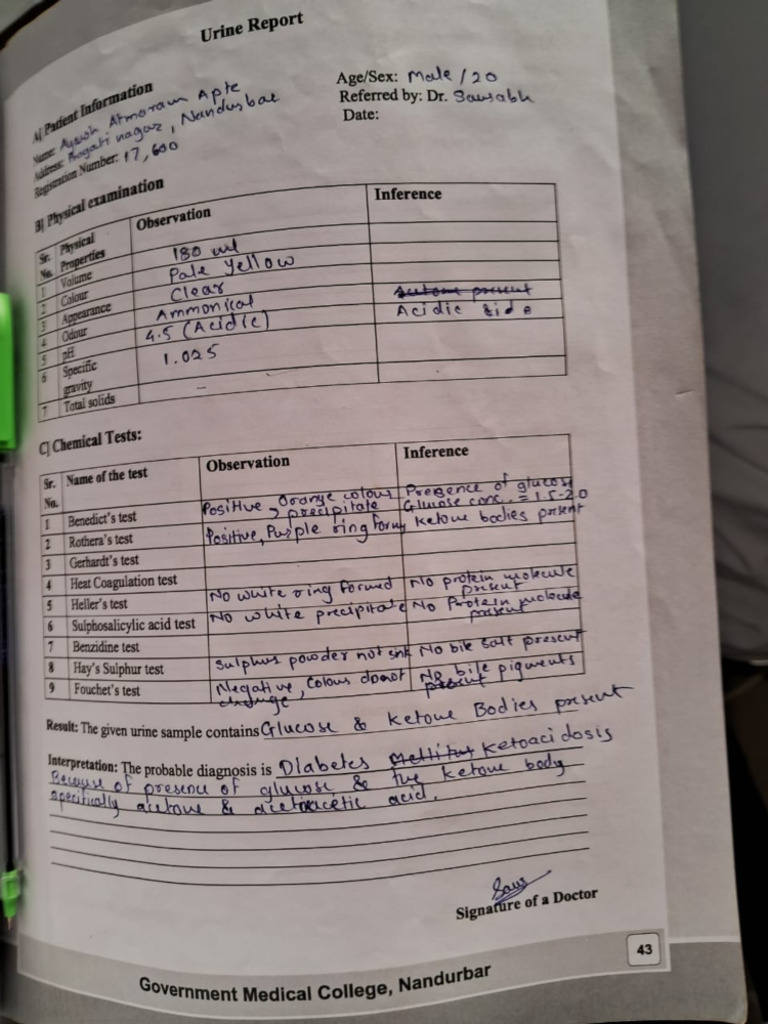 Urine Report
A] Patient Information
Name: Ayush Atmaram Apte
Age/Sex: Male / 20
Address: nagar, Nandurbar
Referred by: Dr. Saurabh
Registration Number: 17,600
Date:
B] Physical examination
Sr. No. Physical Properties Observation Inference
1 Volume 180 ml
2 Colour Pale Yellow
3 Appearance Clear
4 Odour Ammonical Acetone present
5 pH 4.5 (Acidic) Acidic side
6 Specific gravity 1.025
7 Total solids -
C] Chemical Tests:
Sr. No. Name of the test Observation Inference
1 Benedict's test Positive, Orange colour precipitate Presence of glucose Glucose conc. = 1.5-2.0
2 Rothera's test Positive, Purple ring form Ketone bodies present
3 Gerhardt's test
4 Heat Coagulation test
5 Heller's test No white ring formed No protein molecule present
6 Sulphosalicylic acid test No white precipitate No Protein molecule present
7 Benzidine test
8 Hay's Sulphur test Sulphur powder not sink No bile salt present
9 Fouchet's test Negative, Colour donot change No bile pigments present
Result: The given urine sample contains Glucose & Ketone Bodies present
Interpretation: The probable diagnosis is Diabetes Mellitus Ketoacidosis
Because of presence of glucose & the ketone body
specifically acetone & acetoacetic acid.
Signature of a Doctor
43
Government Medical College, Nandurbar